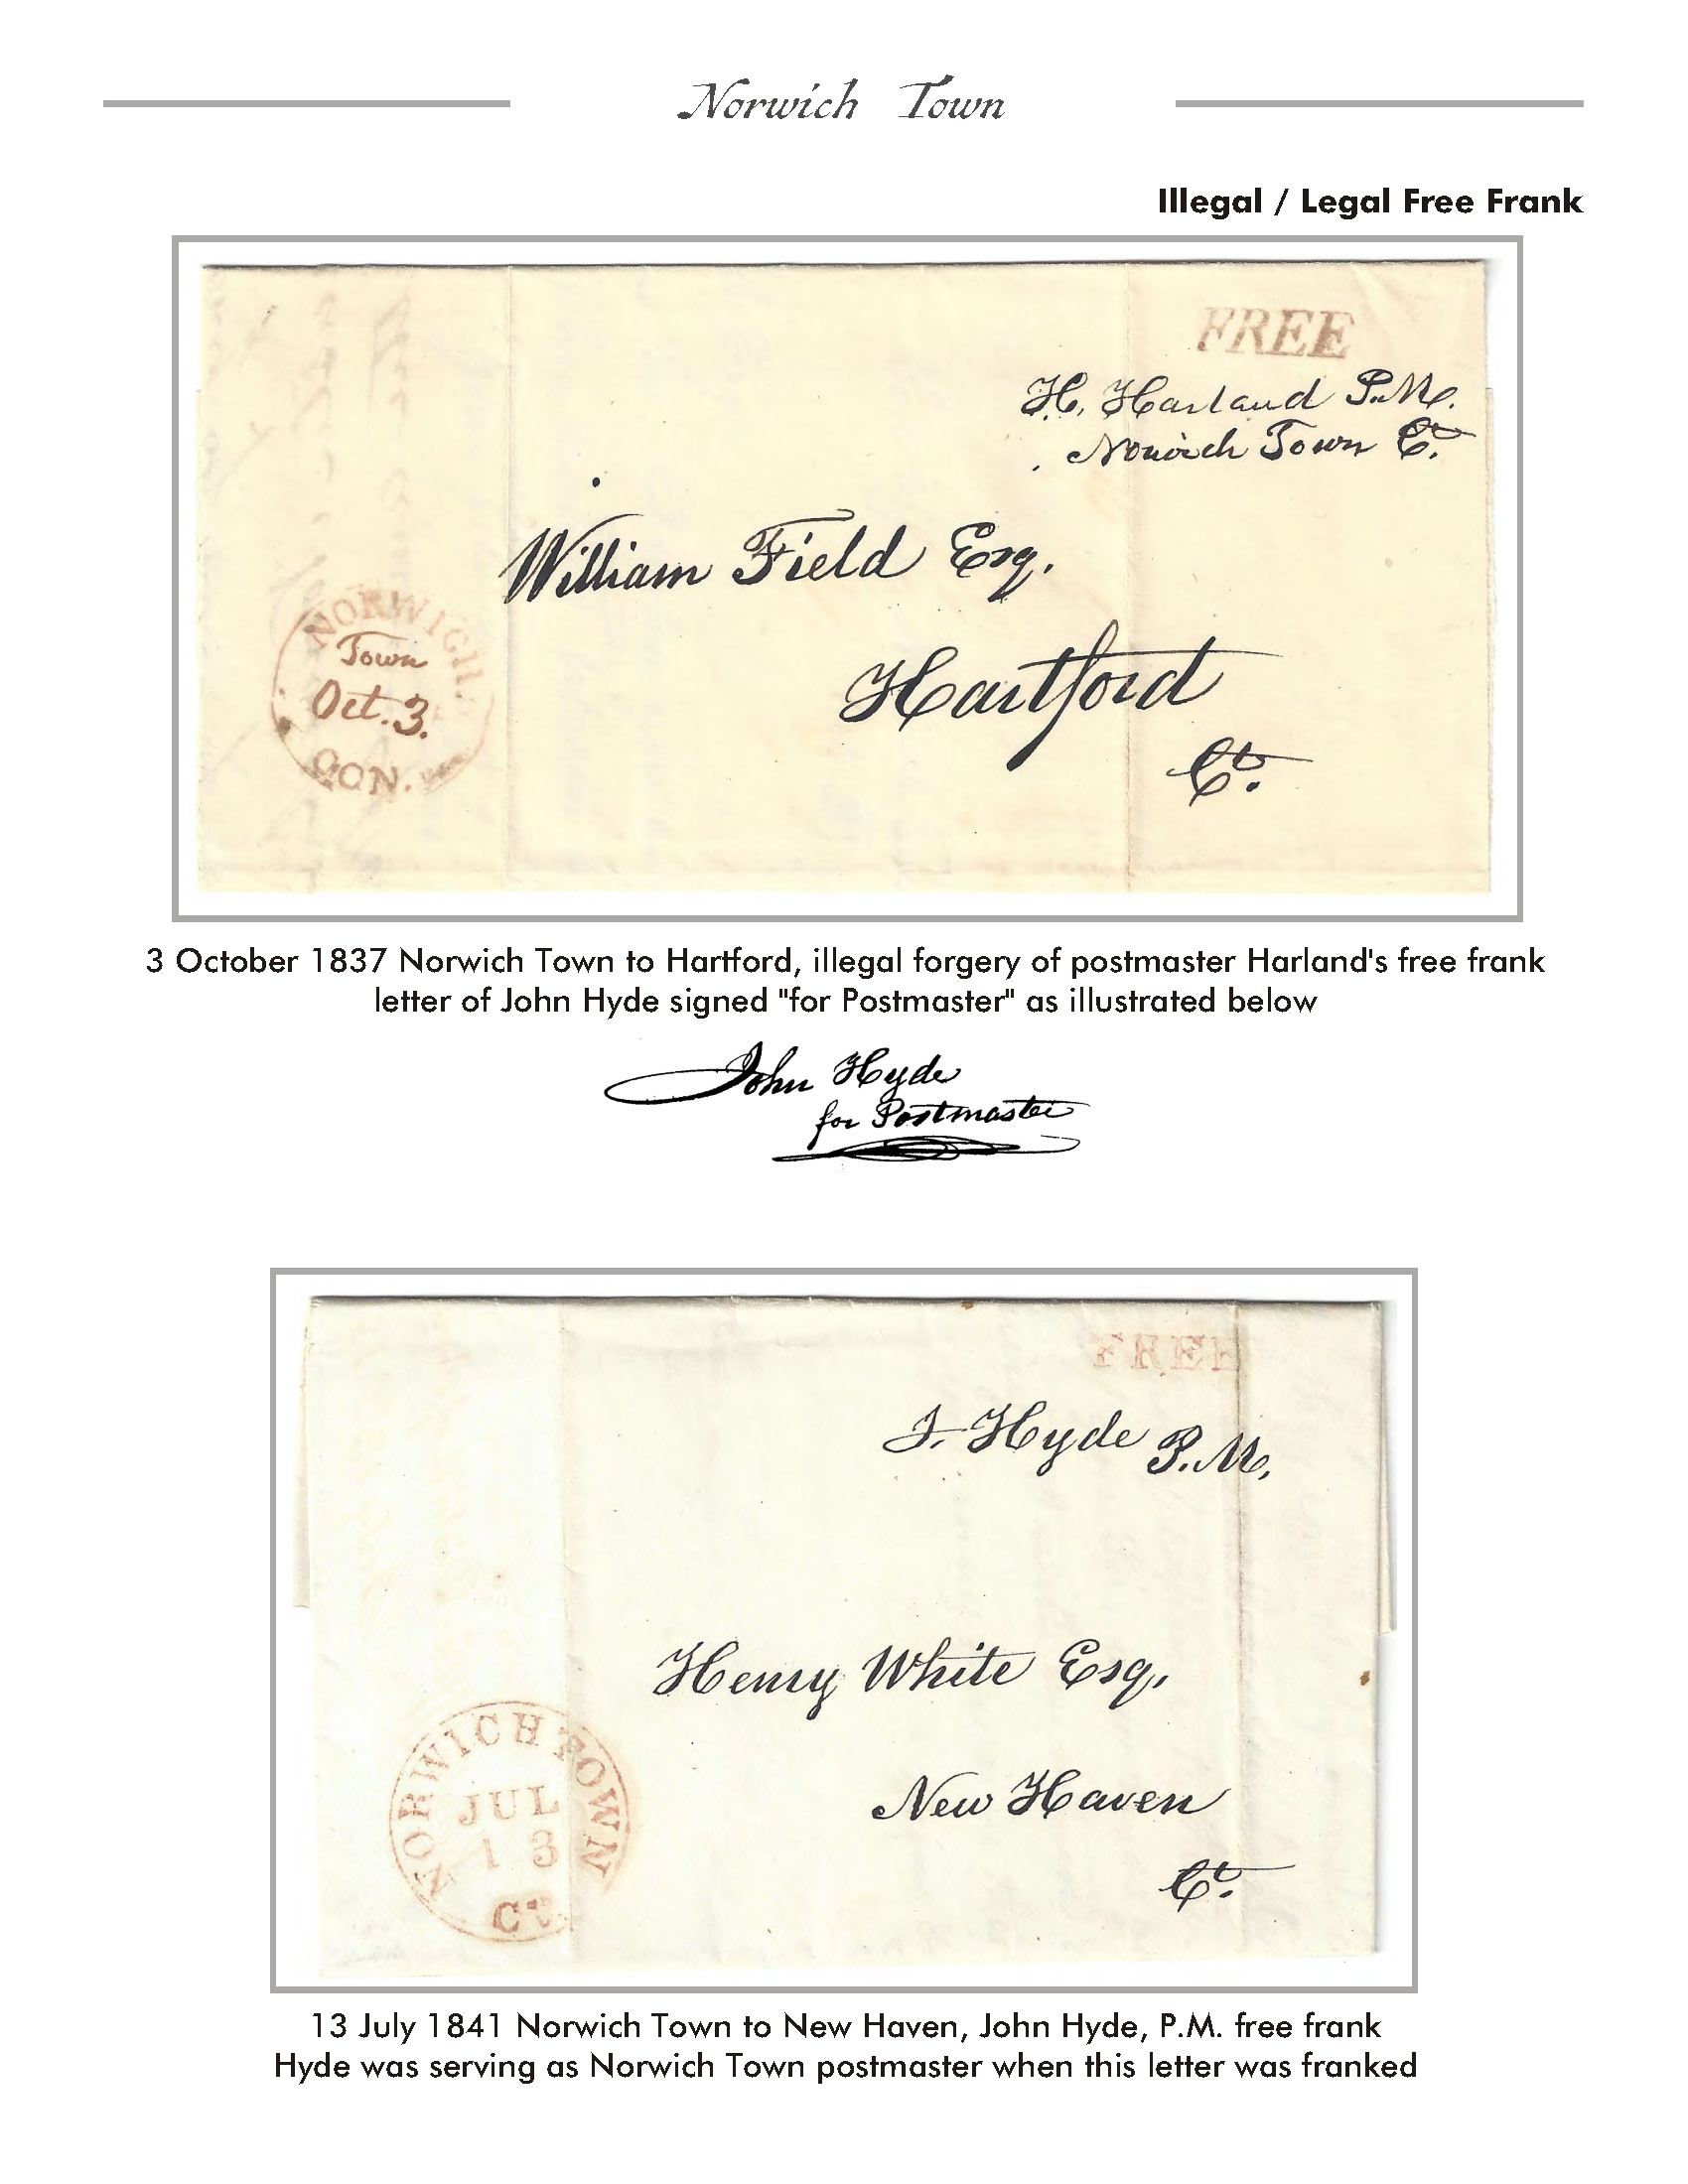 Norwich Town
Illegal / Legal Free Frank
FREE
H. Harland P.M.
Norwich Town Ct.
William Field Esq.
Hartford
Ct.
NORWICH
Town
Oct. 3.
CON.
3 October 1837 Norwich Town to Hartford, illegal forgery of postmaster Harland's free frank
letter of John Hyde signed "for Postmaster" as illustrated below
John Hyde
for Postmaster
FREE
J. Hyde P.M.
Henry White Esq.
New Haven
Ct.
NORWICH TOWN
JUL
13
Ct.
13 July 1841 Norwich Town to New Haven, John Hyde, P.M. free frank
Hyde was serving as Norwich Town postmaster when this letter was franked